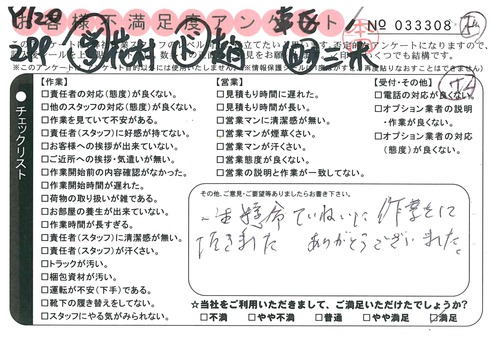 お客様不満足度アンケート
No 033308
チェックリスト
【作業】
□責任者の対応(態度)が良くない。
□他のスタッフの対応(態度)が良くない。
□作業を見ていて不安がある。
□責任者(スタッフ)に好感が持てない。
□お客様への挨拶が出来ていない。
□ご近所への挨拶・気遣いが無い。
□作業開始前の内容確認がなかった。
□作業開始時間が遅れた。
□荷物の取り扱いが雑である。
□お部屋の養生が出来ていない。
□作業時間が長すぎる。
□責任者(スタッフ)に清潔感が無い。
□責任者(スタッフ)が汗くさい。
□トラックが汚い。
□梱包資材が汚い。
□運転が不安(下手)である。
□靴下の履き替えをしてない。
□スタッフにやる気がみられない。
【営業】
□見積もり時間に遅れた。
□見積もり時間が長い。
□営業マンに清潔感が無い。
□営業マンが煙草くさい。
□営業マンが汗くさい。
□営業態度が良くない。
□営業の説明と作業が一致してない。
【受付・その他】
□電話の対応が良くない。
□オプション業者の説明・作業が良くない。
□オプション業者の対応(態度)が良くない。
その他、ご意見・ご要望等ありましたらお書き下さい。
一生懸命ていねいに作業をして
頂きました ありがとうございました。
☆当社をご利用いただきまして、ご満足いただけたでしょうか?
□不満 □やや不満 □普通 □やや満足 ☑満足